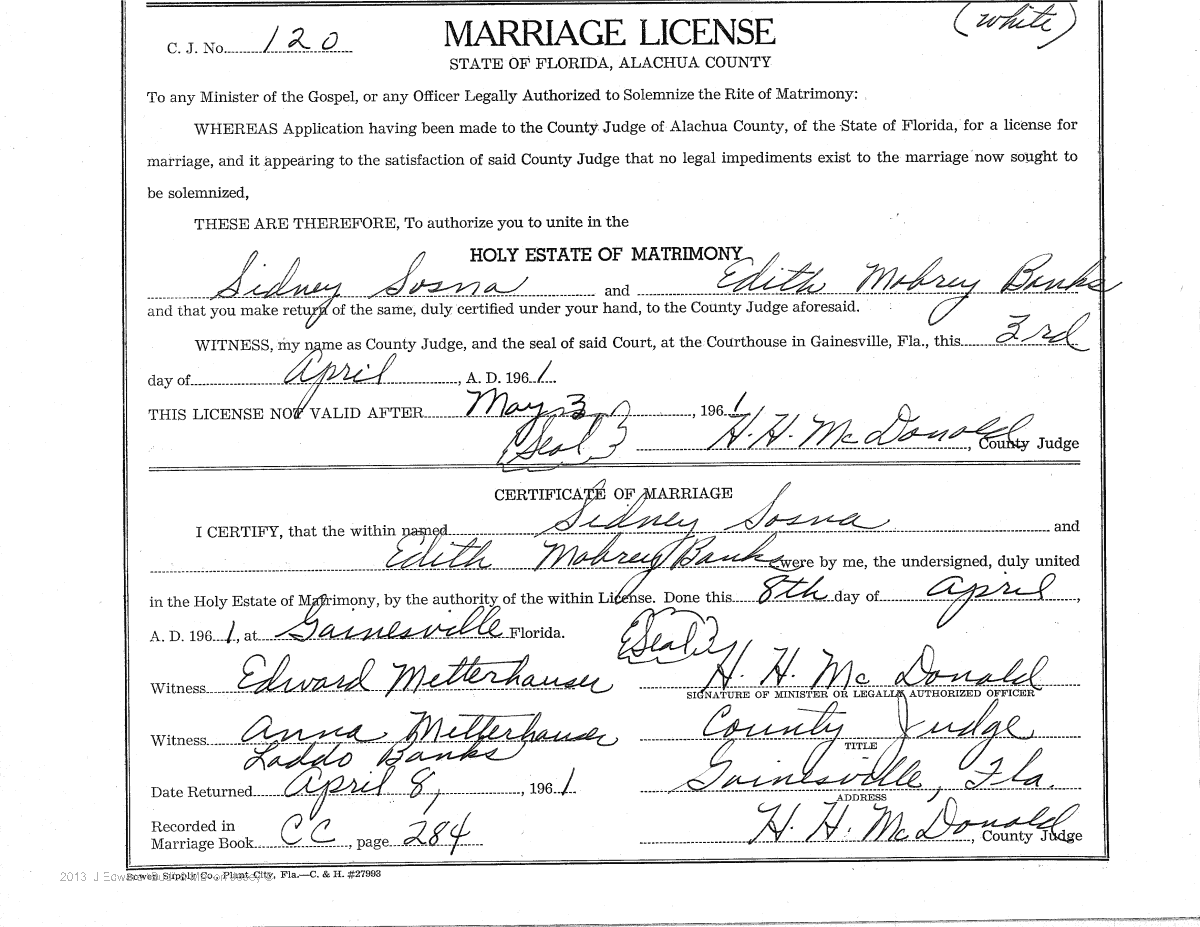 (white)
C. J. No. 120
MARRIAGE LICENSE
STATE OF FLORIDA, ALACHUA COUNTY
To any Minister of the Gospel, or any Officer Legally Authorized to Solemnize the Rite of Matrimony:
WHEREAS Application having been made to the County Judge of Alachua County, of the State of Florida, for a license for
marriage, and it appearing to the satisfaction of said County Judge that no legal impediments exist to the marriage now sought to
be solemnized,
THESE ARE THEREFORE, To authorize you to unite in the
HOLY ESTATE OF MATRIMONY
Sidney Sosna and Edith Mobrey Banks
and that you make return of the same, duly certified under your hand, to the County Judge aforesaid.
WITNESS, my name as County Judge, and the seal of said Court, at the Courthouse in Gainesville, Fla., this 3rd
day of April, A. D. 1961
THIS LICENSE NOT VALID AFTER May 3, 1961
(Seal) H. H. McDonald, County Judge
CERTIFICATE OF MARRIAGE
I CERTIFY, that the within named Sidney Sosna and
Edith Mobrey Banks were by me, the undersigned, duly united
in the Holy Estate of Matrimony, by the authority of the within License. Done this 8th day of April,
A. D. 1961, at Gainesville Florida. (Seal)
Witness Edward Metterhauser H. H. McDonald
SIGNATURE OF MINISTER OR LEGALLY AUTHORIZED OFFICER
Witness Anna Metterhauser County Judge
TITLE
Laddo Banks
Date Returned April 8, 1961 Gainesville, Fla.
ADDRESS
Recorded in
Marriage Book CC, page 284 H. H. McDonald, County Judge
2013 J Edw
Supply Co., Plant City, Fla.—C. & H. #27993